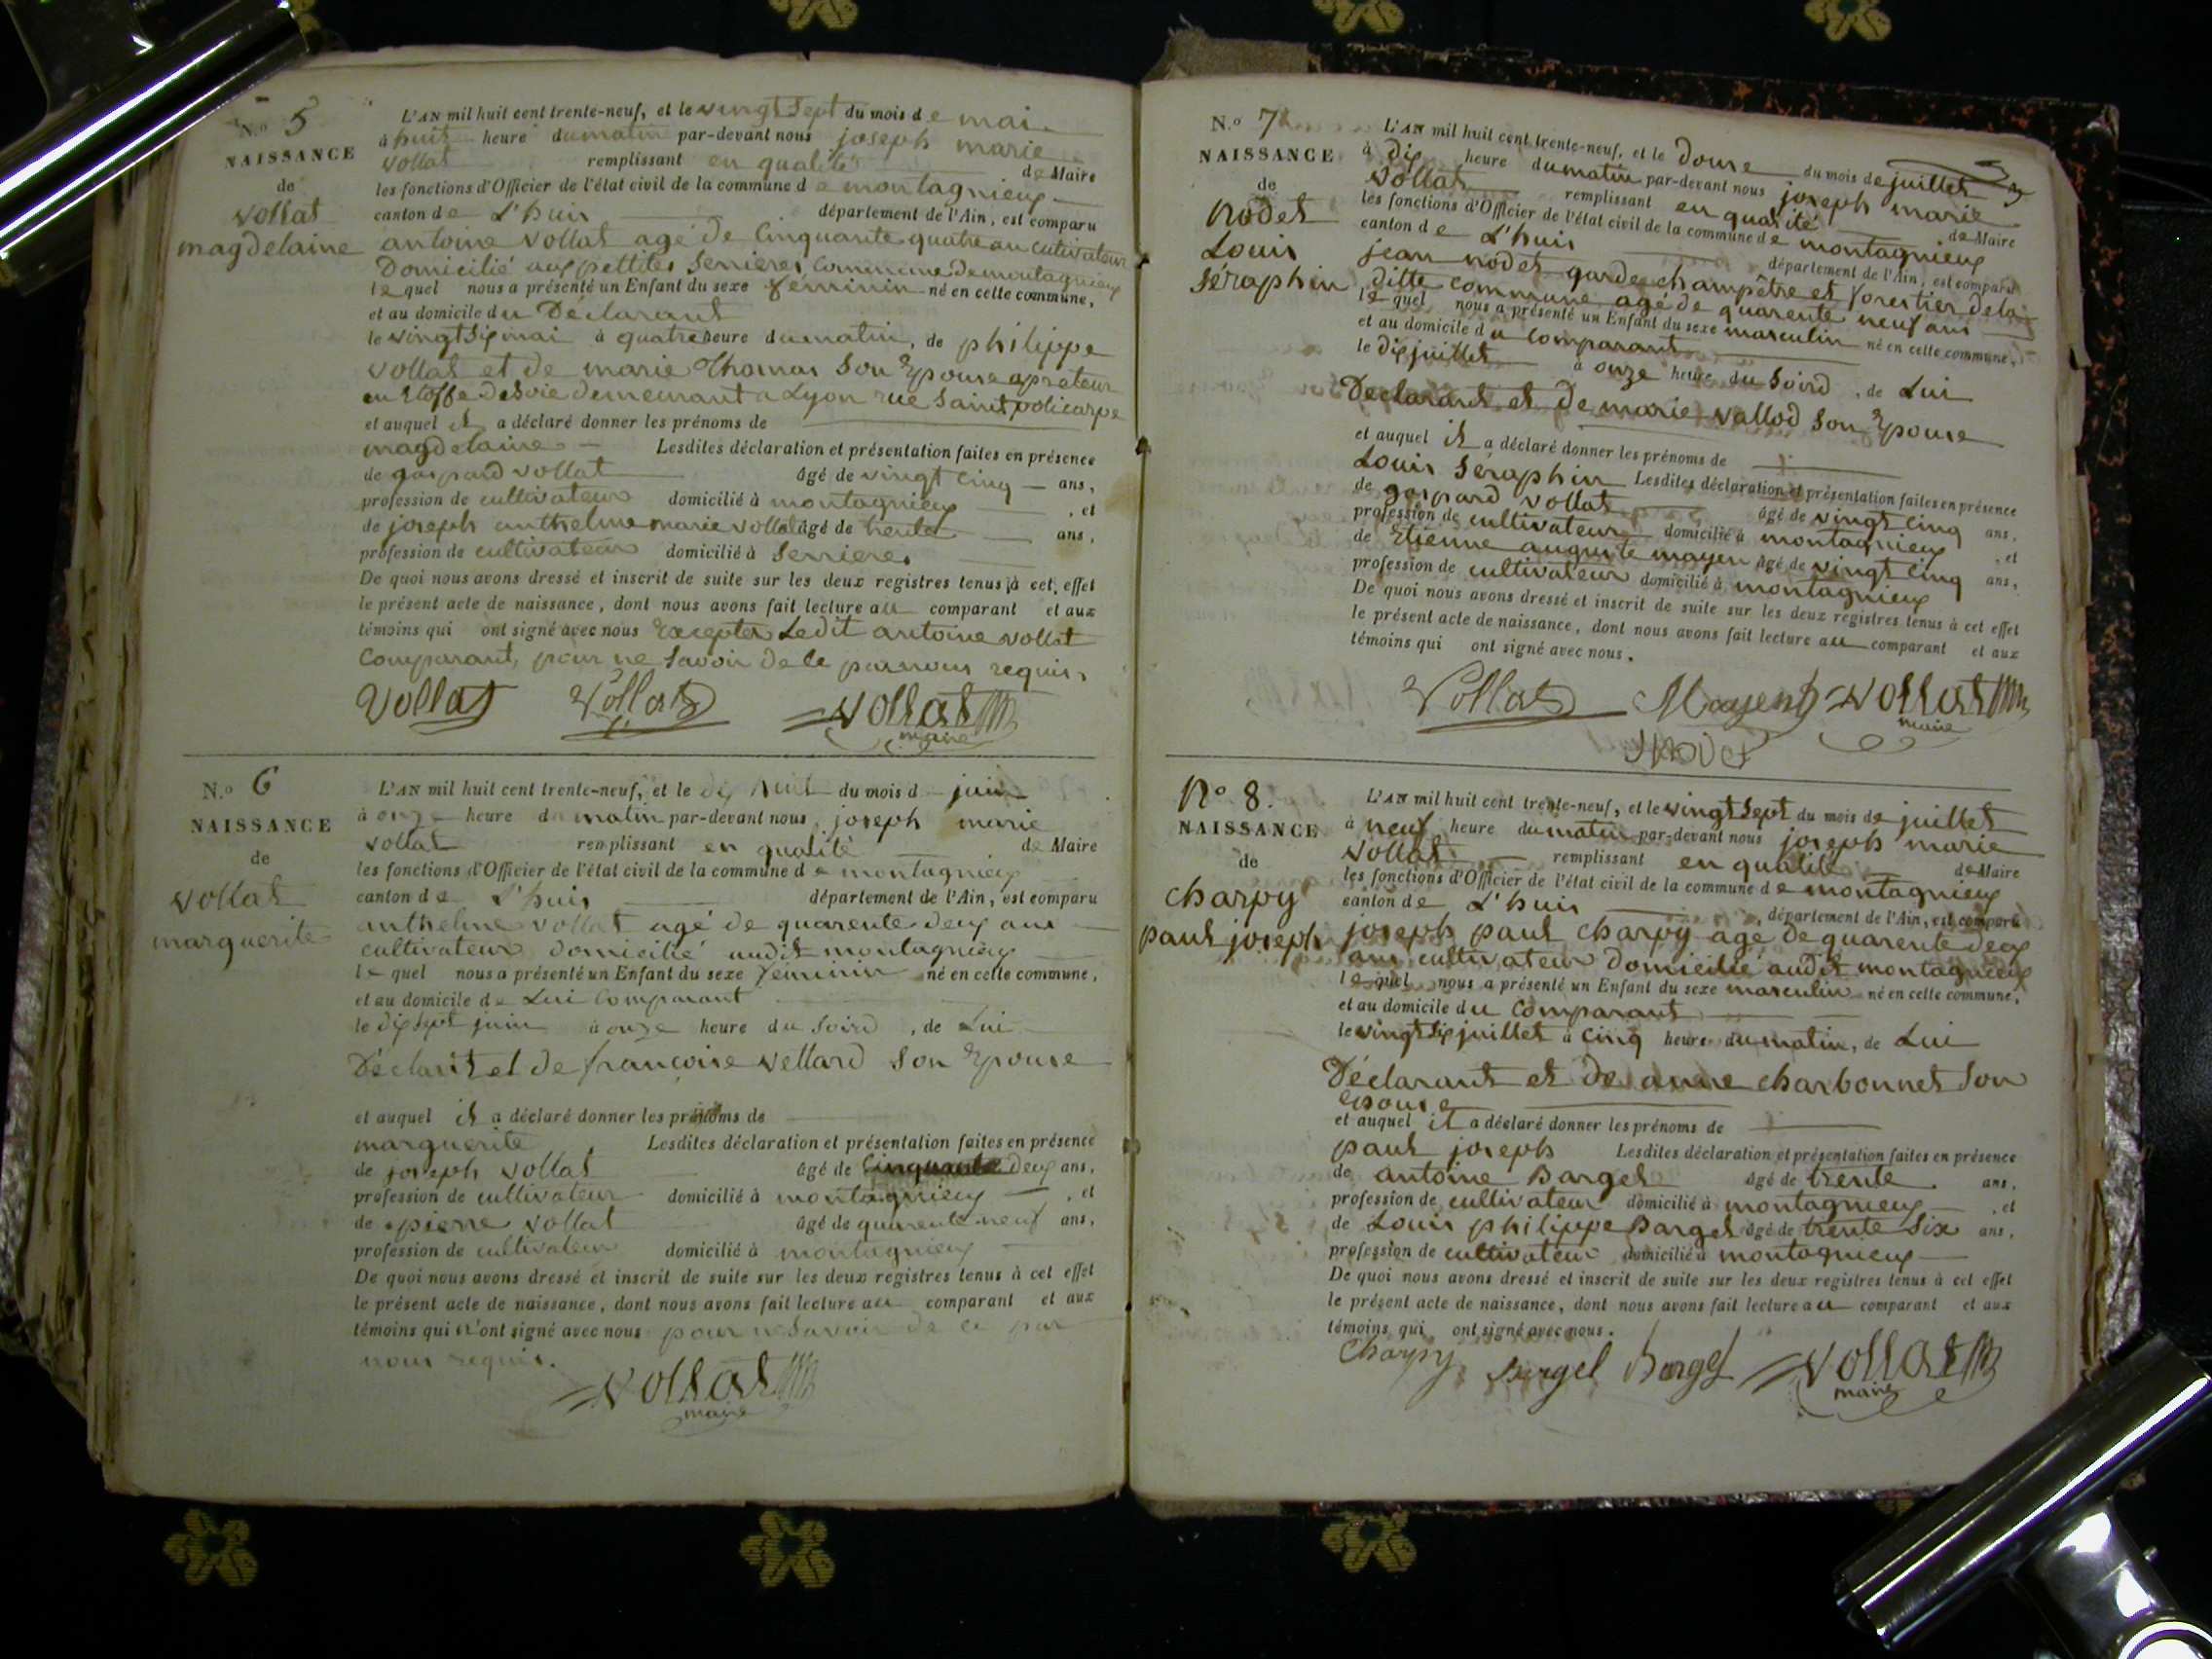 N.° 5
NAISSANCE
de
vollat
magdelaine
L'AN mil huit cent trente-neuf, et le vingt sept du mois de mai
à huit heure du matin par-devant nous joseph marie
vollat remplissant en qualité de Maire
les fonctions d'Officier de l'état civil de la commune de montagnieux
canton de L'huis département de l'Ain, est comparu
antoine vollat agé de Cinquante quatre ans cultivateur
Domicilié aux pettites Serrieres Commune de montagnieux
lequel nous a présenté un Enfant du sexe feminin né en cette commune,
et au domicile du Déclarant
le vingt six mai à quatre heure du matin, de philippe
vollat et de marie Thomas Son Epouse apreteur
en Etoffe de Soie demeurant a Lyon rue Saint policarpe
et auquel il a déclaré donner les prénoms de
magdelaine Lesdites déclaration et présentation faites en présence
de gaspard vollat âgé de vingt cinq ans,
profession de cultivateur domicilié à montagnieux, et
de joseph anthelme marie vollat âgé de trente ans,
profession de cultivateur domicilié à Serrieres
De quoi nous avons dressé et inscrit de suite sur les deux registres tenus à cet effet
le présent acte de naissance, dont nous avons fait lecture au comparant et aux
témoins qui ont signé avec nous Excepter Ledit antoine vollat
Comparant, pour ne Savoir de ce par nous requis.
Vollat Vollat Vollat
maire
N.° 6
NAISSANCE
de
vollat
marguerite
L'AN mil huit cent trente-neuf, et le dix huit du mois d juin
à onze heure du matin par-devant nous joseph marie
vollat remplissant en qualité de Maire
les fonctions d'Officier de l'état civil de la commune de montagnieux
canton de L'huis département de l'Ain, est comparu
anthelme vollat agé de quarente deux ans
cultivateur domicilié audit montagnieux
lequel nous a présenté un Enfant du sexe feminin né en cette commune,
et au domicile de Lui Comparant
le dix sept juin à onze heure du Soird, de Lui
Déclarit et de françoise vellard Son Epouse
et auquel il a déclaré donner les prénoms de
marguerite Lesdites déclaration et présentation faites en présence
de joseph vollat âgé de Cinquante deux ans,
profession de cultivateur domicilié à montagnieux, et
de pierre vollat âgé de quarente neuf ans,
profession de cultivateur domicilié à montagnieux
De quoi nous avons dressé et inscrit de suite sur les deux registres tenus à cet effet
le présent acte de naissance, dont nous avons fait lecture au comparant et aux
témoins qui n'ont signé avec nous pour ne Savoir de ce par
nous requis.
Vollat
maire
N.° 7
NAISSANCE
de
Nodet
Louis
Séraphin
L'AN mil huit cent trente-neuf, et le Douse du mois de juillet
à dix heure du matin par-devant nous joseph marie
vollat remplissant en qualité de Maire
les fonctions d'Officier de l'état civil de la commune de montagnieux
canton de L'huis département de l'Ain, est comparu
jean nodet garde champêtre et forestier de la
ditte commune agé de quarente neuf ans
lequel nous a présenté un Enfant du sexe masculin né en cette commune,
et au domicile du Comparant
le dix juillet à onze heure du Soird, de Lui
Declarant et de marie vallod Son Epouse
et auquel il a déclaré donner les prénoms de
Louis Séraphin Lesdites déclaration et présentation faites en présence
de gaspard vollat âgé de vingt cinq ans,
profession de cultivateur domicilié à montagnieux, et
de Etienne auguste mayen âgé de vingt cinq ans,
profession de cultivateur domicilié à montagnieux
De quoi nous avons dressé et inscrit de suite sur les deux registres tenus à cet effet
le présent acte de naissance, dont nous avons fait lecture au comparant et aux
témoins qui ont signé avec nous.
Vollat Vollat
maire
Nodet
N° 8.
NAISSANCE
de
Charpy
paul joseph
L'AN mil huit cent trente-neuf, et le vingt sept du mois de juillet
à neuf heure du matin par-devant nous joseph marie
vollat remplissant en qualité de Maire
les fonctions d'Officier de l'état civil de la commune de montagnieux
canton de L'huis, département de l'Ain, est comparu
joseph paul charpy agé de quarente deux
ans cultivateur Domicilié audit montagnieux
lequel nous a présenté un Enfant du sexe masculin né en cette commune,
et au domicile du Comparant
le vingt six juillet à cinq heure du matin, de Lui
Déclarant et de anne charbonnet Son
Epouse
et auquel il a déclaré donner les prénoms de
paul joseph Lesdites déclaration et présentation faites en présence
de antoine Barget âgé de trente ans,
profession de cultivateur domicilié à montagnieux, et
de Louis philippe Barget âgé de trente Six ans,
profession de cultivateur domicilié à montagnieux
De quoi nous avons dressé et inscrit de suite sur les deux registres tenus à cet effet
le présent acte de naissance, dont nous avons fait lecture au comparant et aux
témoins qui ont signé avec nous.
Charpy Bargel Barget Vollat
maire